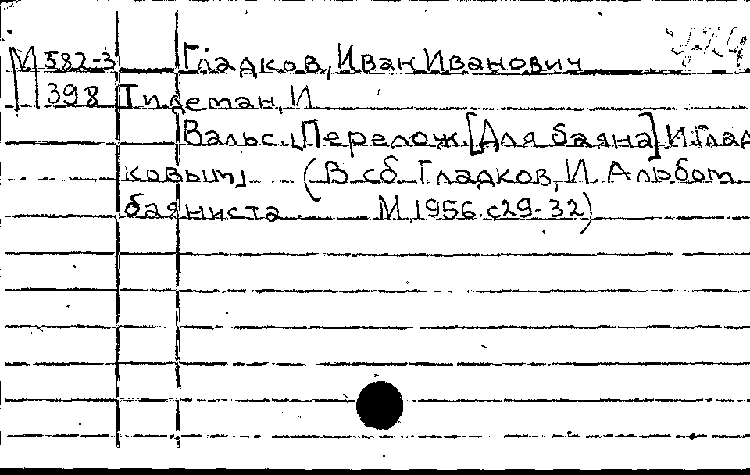 М 582-3 Гладков, Иван Иванович
398 Тидеман, И
Вальс. [Перелож. [Для баяна] И.Глад
ковым] (В сб. Гладков, И. Альбом
баяниста М, 1956. с29-32)